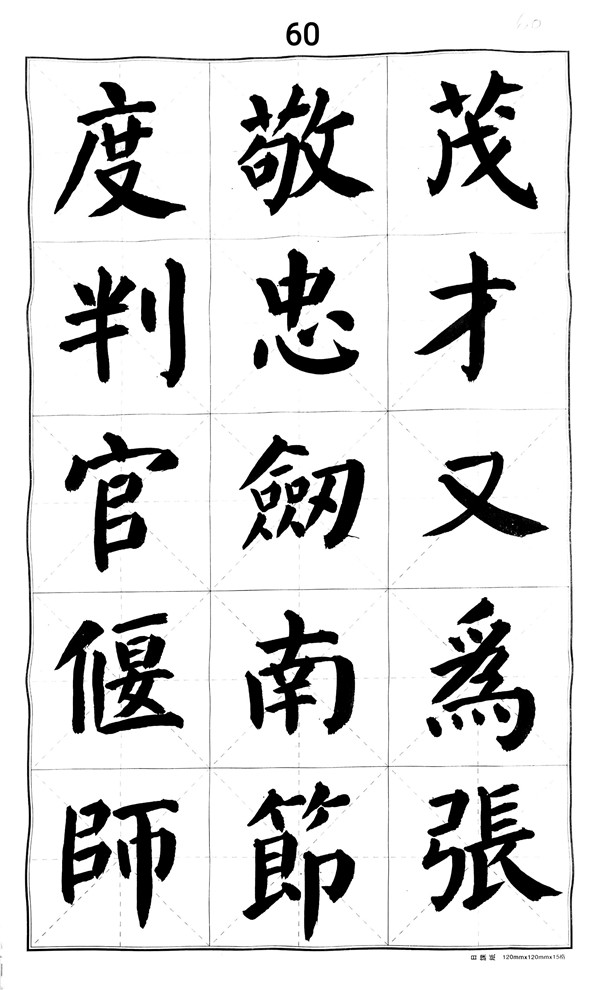 60
茂才又爲張
敬忠劒南節
度判官偃師
120mmx120mmx15格